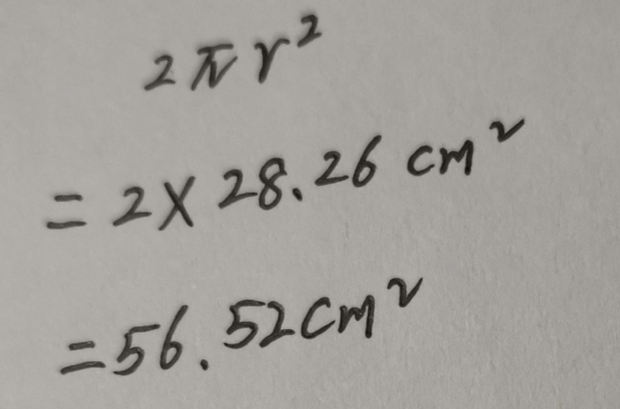 2πr²
= 2×28.26 cm²
=56.52cm²